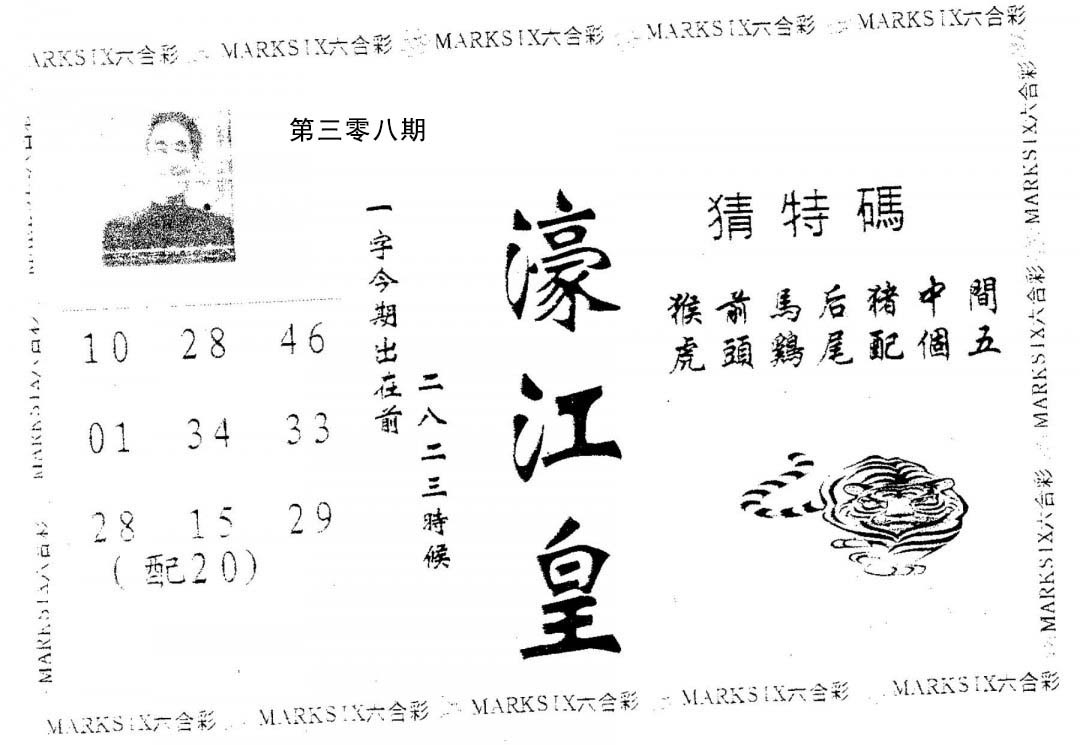 MARKSIX六合彩 MARKSIX六合彩 MARKSIX六合彩 MARKSIX六合彩
第三零八期
一字今期出在前
二八二三時候
濠江皇
猜特碼
猴前馬后豬中間
虎頭鷄尾配個五
10 28 46
01 34 33
28 15 29
(配20)
MARKSIX六合彩
MARKSIX六合彩
MARKSIX六合彩
MARKSIX六合彩 MARKSIX六合彩 MARKSIX六合彩 MARKSIX六合彩 MARKSIX六合彩